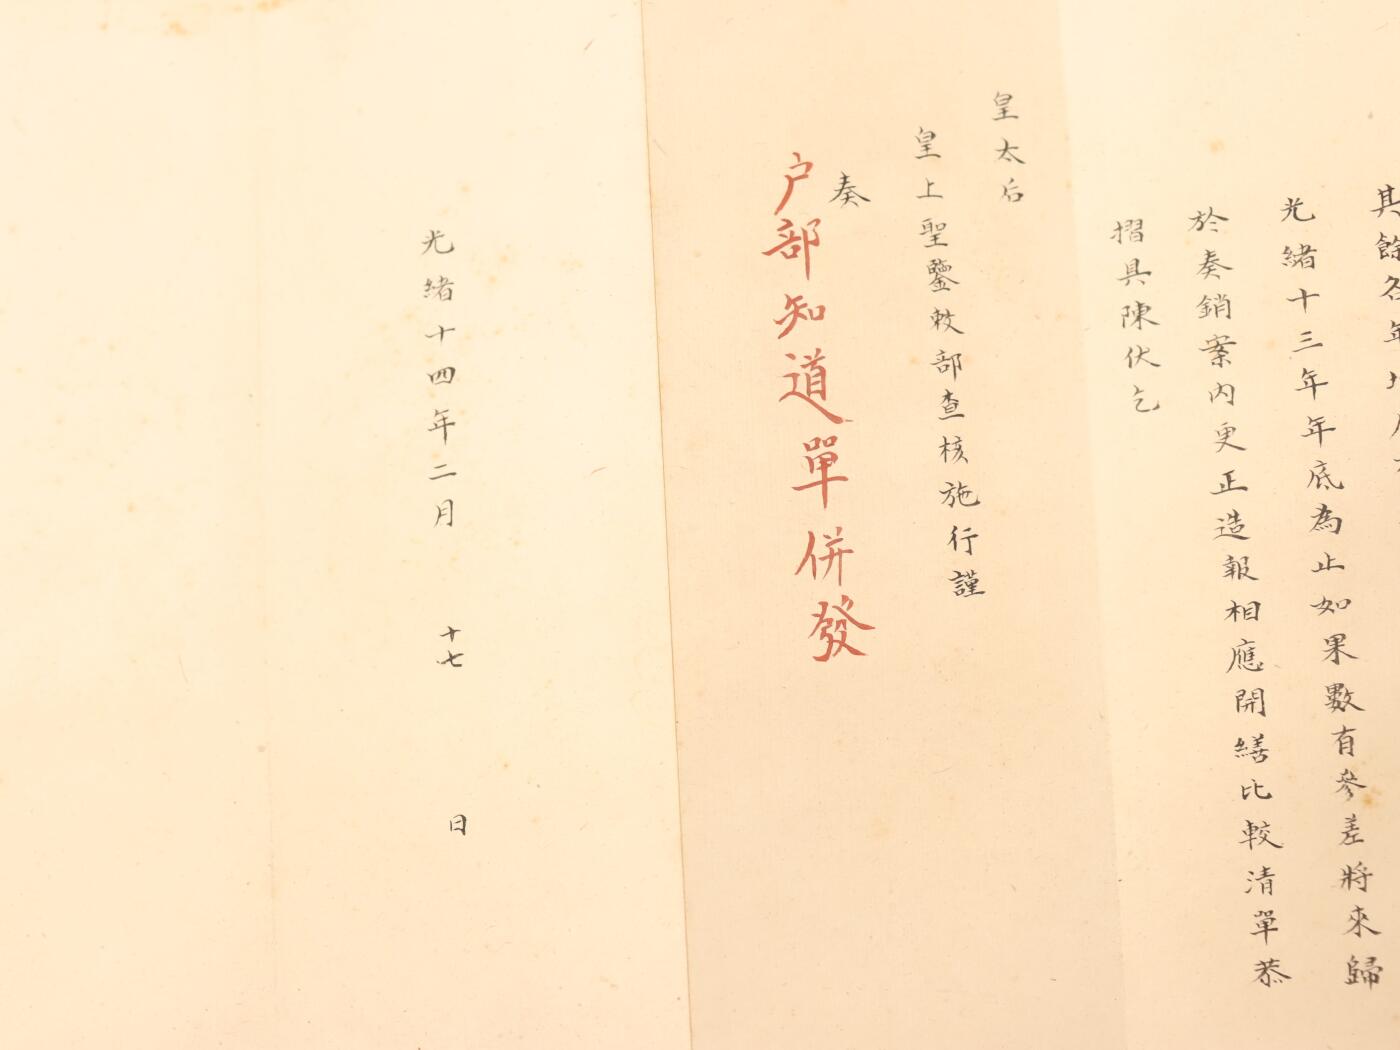 其餘各年
光緒十三年年底為止如果數有參差將來歸
於奏銷案內更正造報相應開繕比較清單恭
摺具陳伏乞
皇太后
皇上聖鑒敕部查核施行謹
奏
户部知道單併發
光緒十四年二月十七日